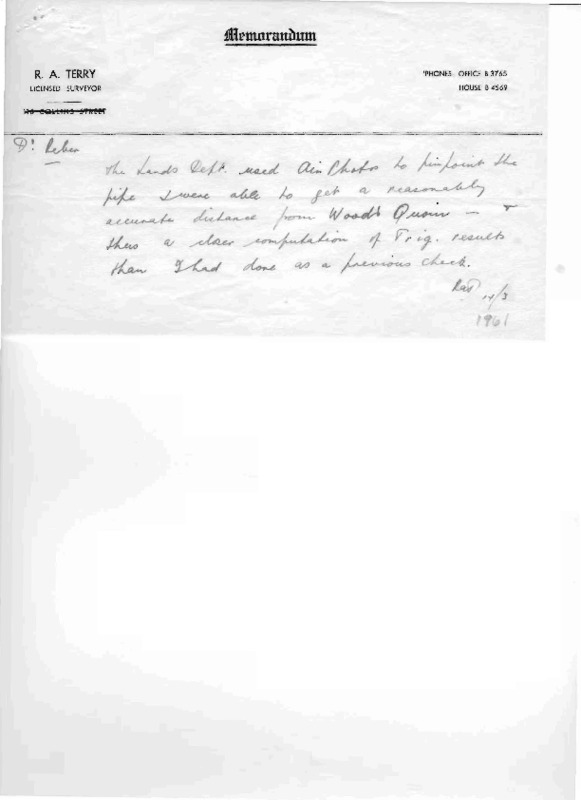 Memorandum
R. A. TERRY
LICENSED SURVEYOR
'PHONES: OFFICE B 3765
HOUSE B 4569
COLLINS STREET
Dr Reber
The Lands Dept. used Air Photos to pinpoint the
pipe & were able to get a reasonably
accurate distance from Wood's Quoin —
thus a closer computation of Trig. results
than I had done as a previous check.
RAT 14/3
1961